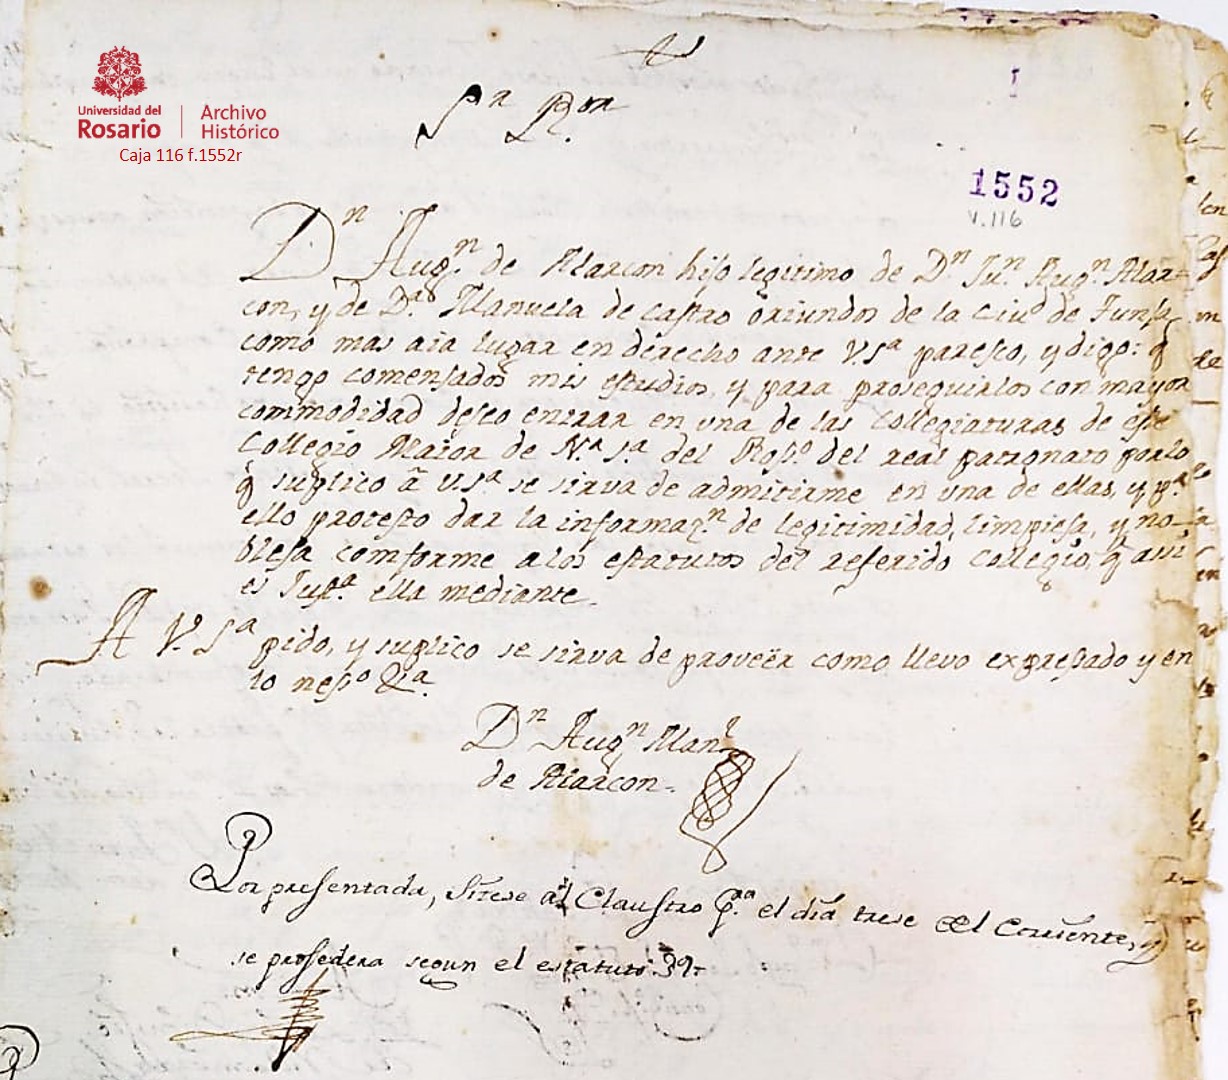 Universidad del
Rosario
Archivo
Histórico
Caja 116 f.1552r
1
Sr Ror
1552
V.116
Dn Augn. de Alarcon hijo legitimo de Dn Jun. Augn Alar=
con, y de Da. Manuela de castro oriundos de la Ciud de Tunja
como mas aia lugar en derecho ante V.Sa paresco, y digo: q̃
tengo comensados mis estudios, y para proseguirlos con mayor
commodidad deseo entrar en una de las collegiaturas de este
Collegio Maior de N.a S.a del Rosro del real patronato por lo
q̃ suplico â V.Sa se sirva de admitirme en una de ellas, y pa.
ello protesto dar la informazn de legitimidad, limpiesa, y no=
blesa comforme a los estatutos del referido Collegio, q̃ assi
es Justa. ella mediante.
A V. Sa pido, y suplico se sirva de proveër como llevo expresado y en
lo nesso &a.
Dn Augn Manl
de Alarcon.
Por presentada, sitese al Claustro pa. el dia trese del Corriente, y
se prosedera segun el estatuto 39.